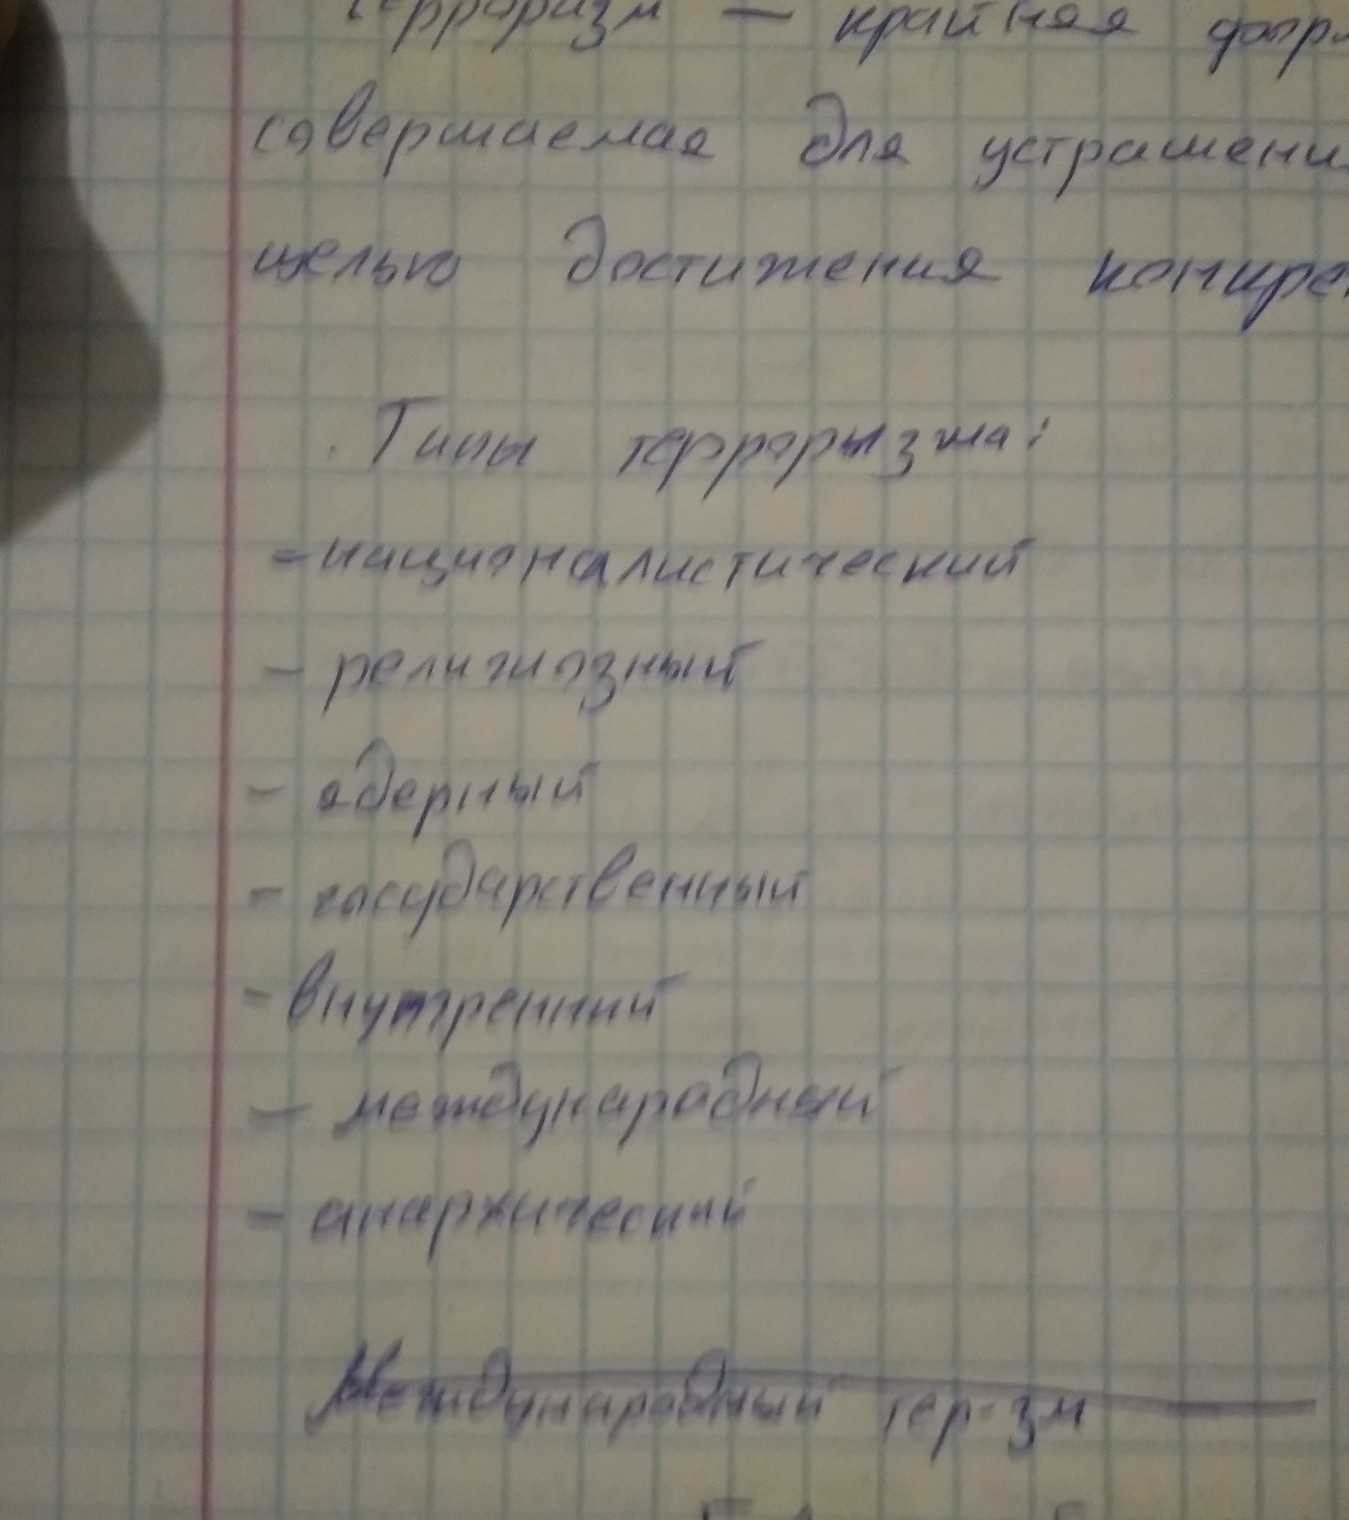 терроризм — крайняя форм
совершаемая для устрашени
целью достижения конкрет
Типы террорызма:
- националистический
- религиозный
- ядерный
- государственный
- внутренний
- международный
- анархический
Международный тер-зм